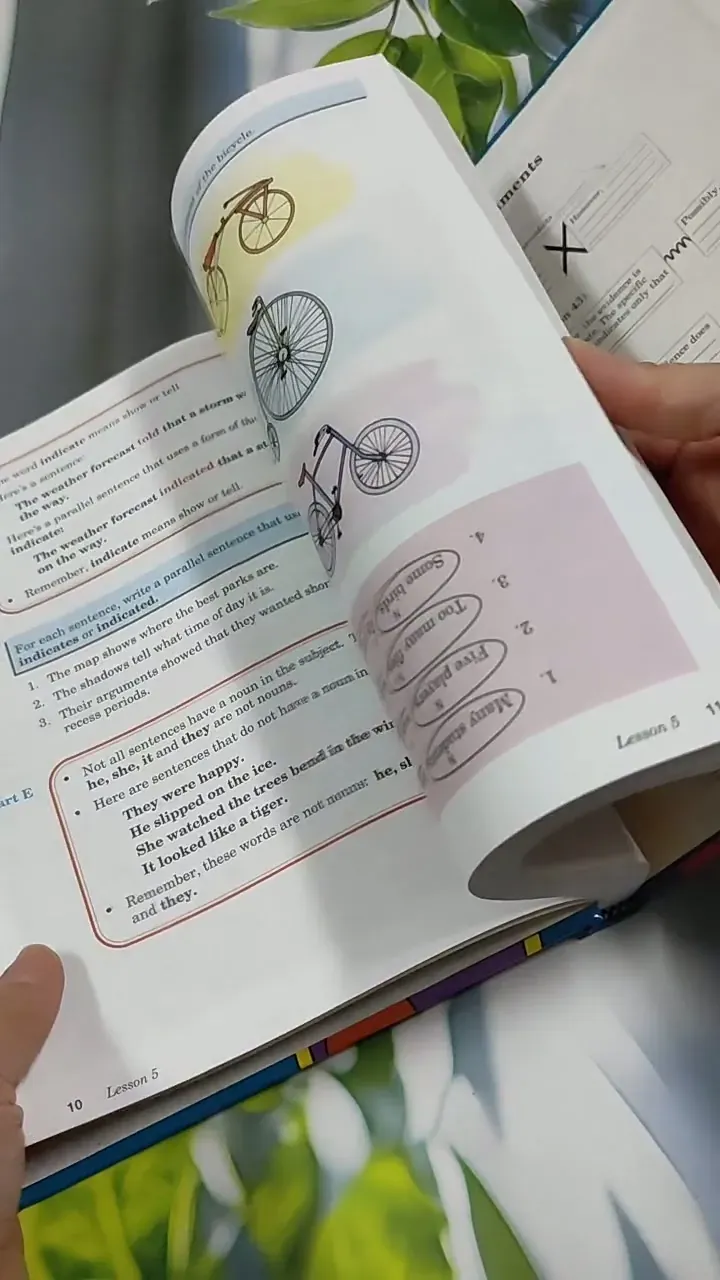 he word indicate means show or tell
Here's a sentence:
The weather forecast told that a storm w
the way.
Here's a parallel sentence that uses a form of the
indicate:
The weather forecast indicated that a st
on the way.
• Remember, indicate means show or tell.
For each sentence, write a parallel sentence that us
indicates or indicated.
1. The map shows where the best parks are.
2. The shadows tell what time of day it is.
3. Their arguments showed that they wanted shor
recess periods.
art E
• Not all sentences have a noun in the subject. T
he, she, it and they are not nouns.
• Here are sentences that do not have a noun in
They were happy.
He slipped on the ice.
She watched the trees bend in the win
It looked like a tiger.
• Remember, these words are not nouns: he, sh
and they.
10 Lesson 5
of the bicycle.
4.
Some birds
3.
Too many
2.
Five players
1.
Many students
Lesson 5 11
ments
However,
Possibly
X
n 43)
the evidence is
The specific
indicates only that
ence does